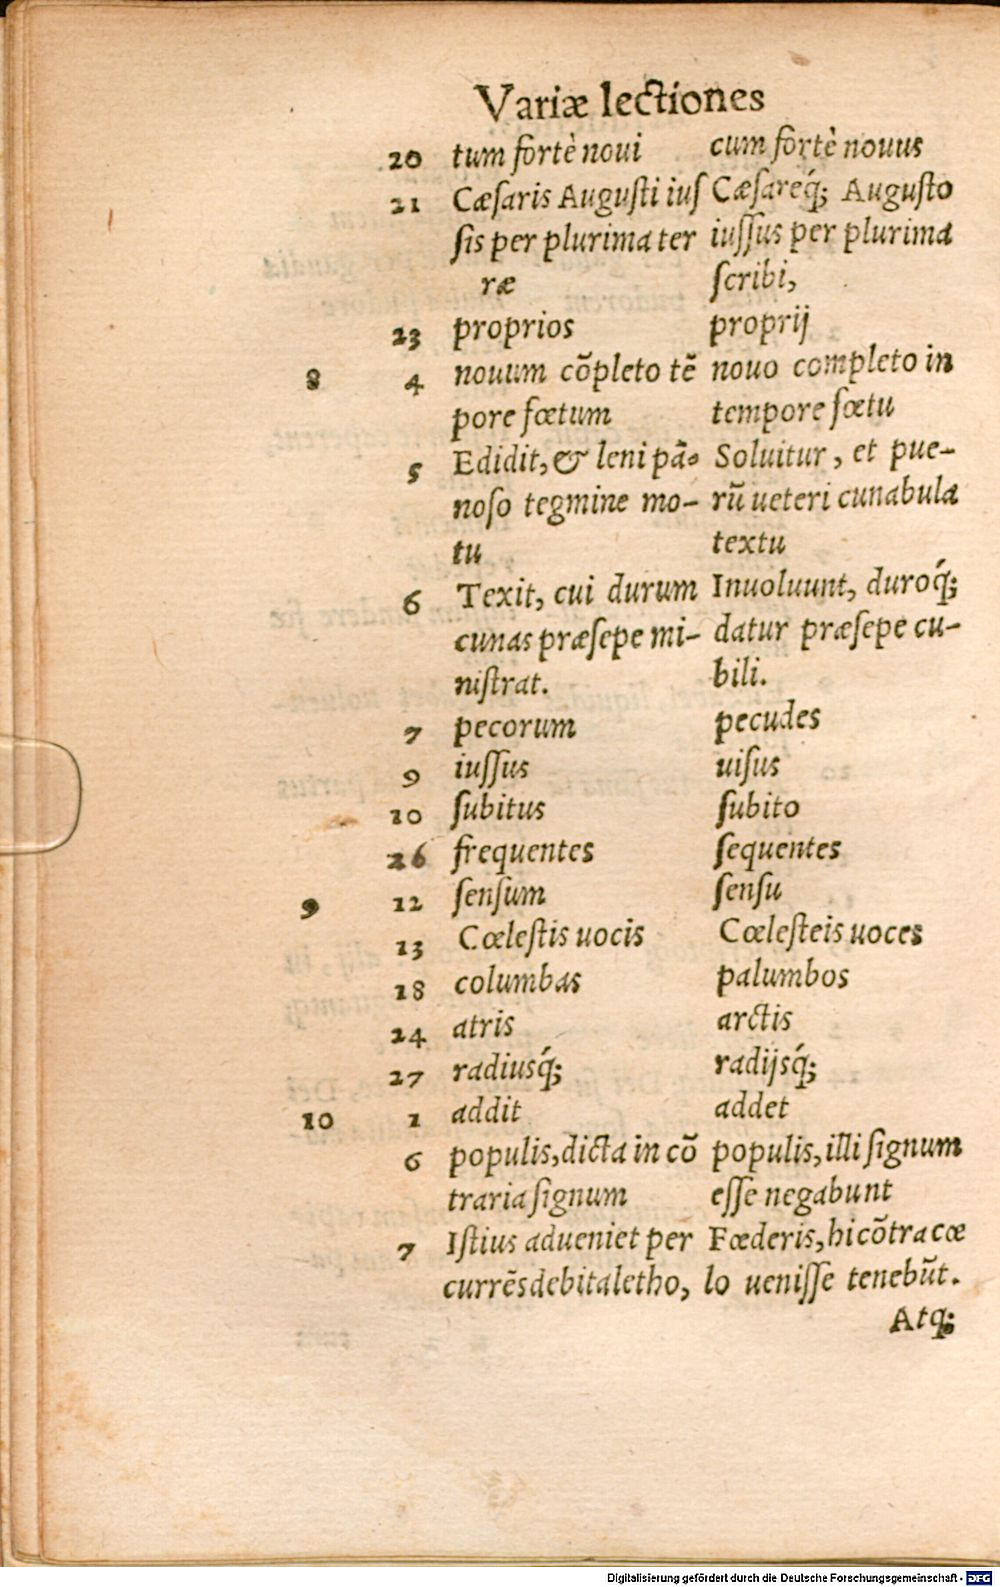 Variæ lectiones
20 tum fortè noui cum fortè nouus
21 Cæſaris Auguſti iuſ Cæſareq́; Auguſto
ſis per plurima ter iuſſus per plurima
ræ ſcribi,
23 proprios proprij
8 4 nouum cõpleto tẽ nouo completo in
pore fœtum tempore fœtu
5 Edidit, & leni pã- Soluitur, et pue-
noſo tegmine mo- rũ ueteri cunabula
tu textu
6 Texit, cui durum Inuoluunt, duroq́;
cunas præſepe mi- datur præſepe cu-
niſtrat. bili.
7 pecorum pecudes
9 iuſſus uiſus
10 ſubitus ſubito
26 frequentes ſequentes
9 12 ſenſum ſenſu
13 Cœleſtis uocis Cœleſteis uoces
18 columbas palumbos
24 atris arctis
27 radiusq́; radijsq́;
10 1 addit addet
6 populis, dicta in cõ populis, illi ſignum
traria ſignum eſſe negabunt
7 Iſtius adueniet per Fœderis, hi cõtra cœ
currẽs debita letho, lo ueniſſe tenebũt.
Atq;
Digitalisierung gefördert durch die Deutsche Forschungsgemeinschaft - DFG